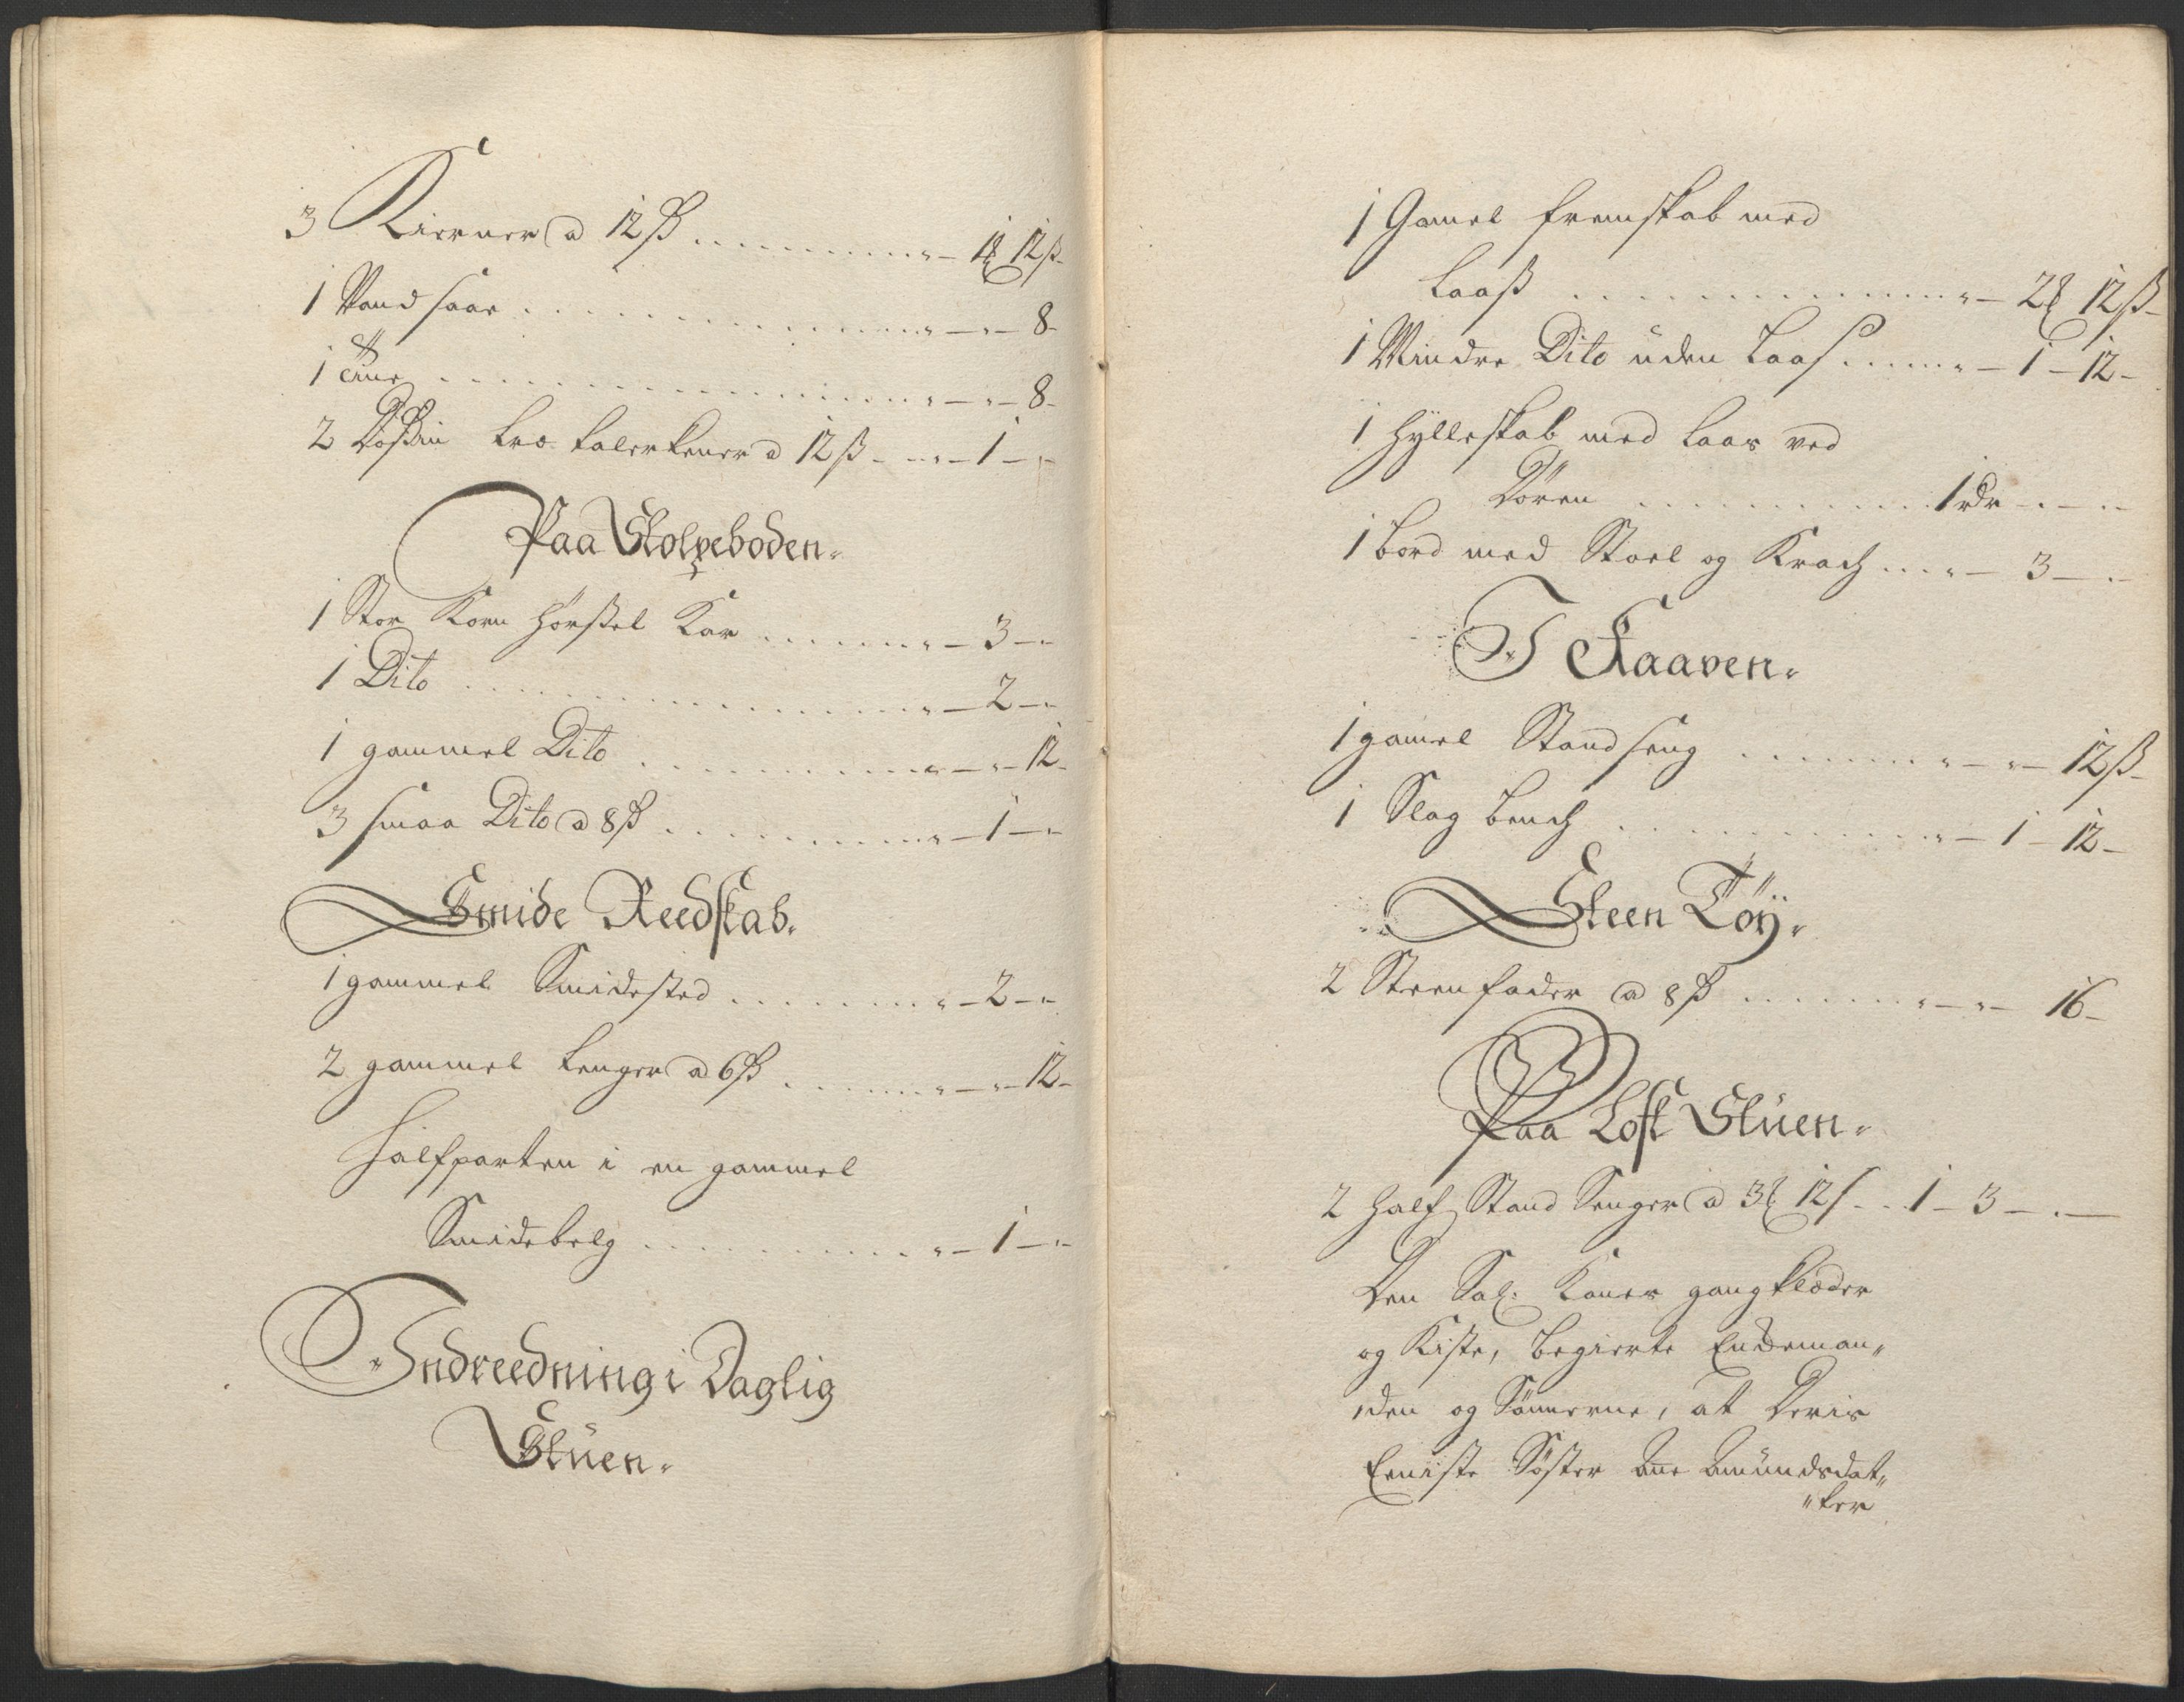 3 Kierner a 12 ß ........ 1 12 ß
1 Vand saar ........ 8
1 Tiine ........ 8
2 Dossin træ talerkener a 12 ß ... 1
Paa Stolpeboden
1 Stor Korn hørssel Kar ........ 3
1 Dito ........ 2
1 gammel Dito ........ 12
3 smaa Dito a 8 ß ........ 1
Smide Reedskab
1 gammel Smidested ........ 2
2 gammel tenger a 6 ß ........ 12
Halfparten i en gammel
Smidebelg ........ 1
Indreedning i Daglig
Stüen
1 Gamel fremskab med
Laaß ........ 2 12 ß
1 Mindre Dito üden Laas ..... 1 - 12
1 hylleskab med laas ved
Døren ........ 1 rdr
1 bord med Stoel og Krach .... 3
I Kaaven
1 gamel Stand seng ........ 12 ß
1 Slag bench ........ 1 - 12
Steen Töÿ
2 Steen fader a 8 ß ........ 16
Paa Loft Stüen
2 half Stand Senger a 3 12 ß .. 1 - 3
Den Sal: Kones gangklæder
og Kiste, begierte Enckeman„
den og Sønnerne, at Deris
Eeniste Søster Ane Amündsdat„
„ter